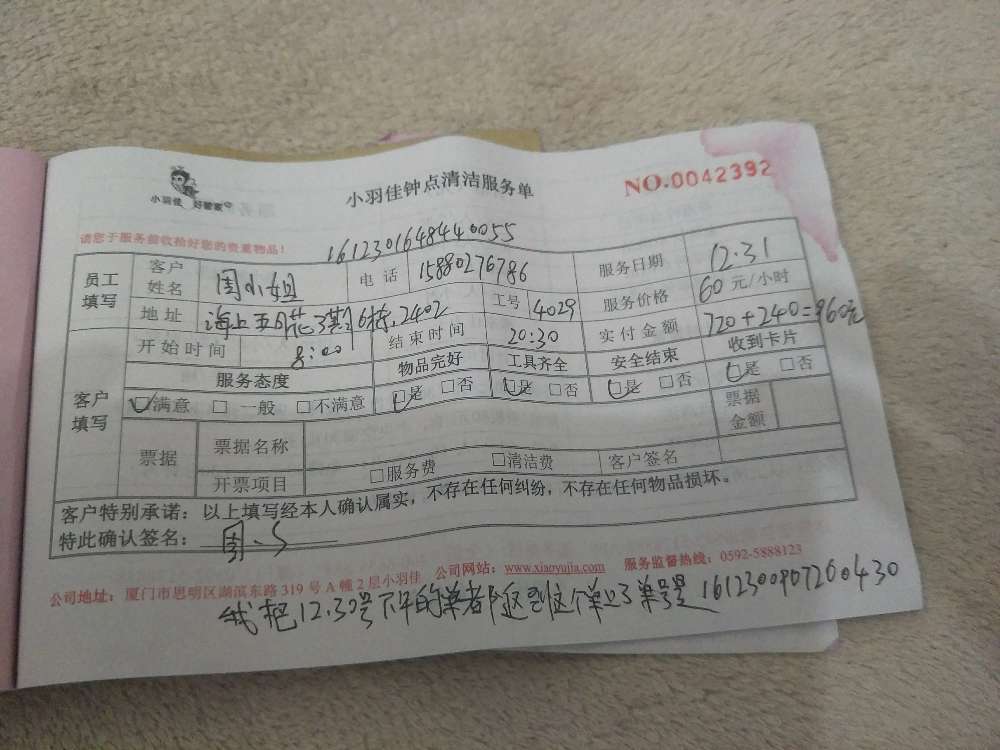 小羽佳 好管家
小羽佳钟点清洁服务单
NO.0042392
请您于服务前收拾好您的贵重物品！
1612301648440055
员工填写 客户姓名 周小姐 电话 15880276786 服务日期 12.31
地址 海上五月花3期6栋.2402 工号 4029 服务价格 60元/小时
开始时间 8:00 结束时间 20:30 实付金额 720+240=960元
客户填写 服务态度 物品完好 工具齐全 安全结束 收到卡片
☑满意 □一般 □不满意 ☑是 □否 ☑是 □否 ☑是 □否 ☑是 □否
票据 票据名称 票据金额
开票项目 □服务费 □清洁费 客户签名
客户特别承诺：以上填写经本人确认属实，不存在任何纠纷，不存在任何物品损坏。
特此确认签名：周
公司地址：厦门市思明区湖滨东路319号A幢2层小羽佳 公司网站：www.xiaoyujia.com 服务监督热线：0592-5888123
我把12.30号下午的单者 到这个单上了单号是1612300907260430